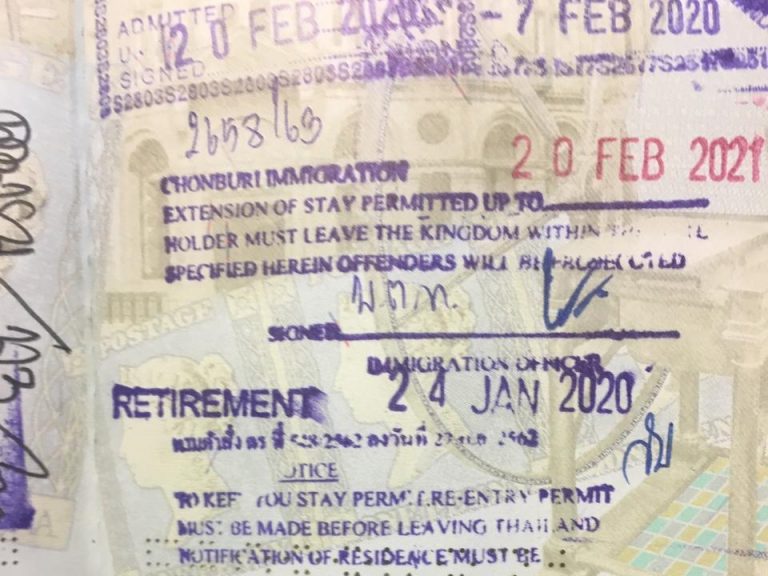 ADMITTED 20 FEB 2020 - 7 FEB 2020
SIGNED
S2803S2803S2803S2803S2
2658/63
20 FEB 2021
CHONBURI IMMIGRATION
EXTENSION OF STAY PERMITTED UP TO
HOLDER MUST LEAVE THE KINGDOM WITHIN
SPECIFIED HEREIN OFFENDERS WILL BE PROSECUTED
พ.ต.ท.
SIGNED
IMMIGRATION OFFICER
RETIREMENT 24 JAN 2020
ตามคำสั่ง ตร ที่ 528/2562 ลงวันที่ 2562
OTICE
TO KEE YOU STAY PERM RE-ENTRY PERMIT
MUST BE MADE BEFORE LEAVING THAILAND
NOTIFICATION OF RESIDENCE MUST BE
POSTAGE